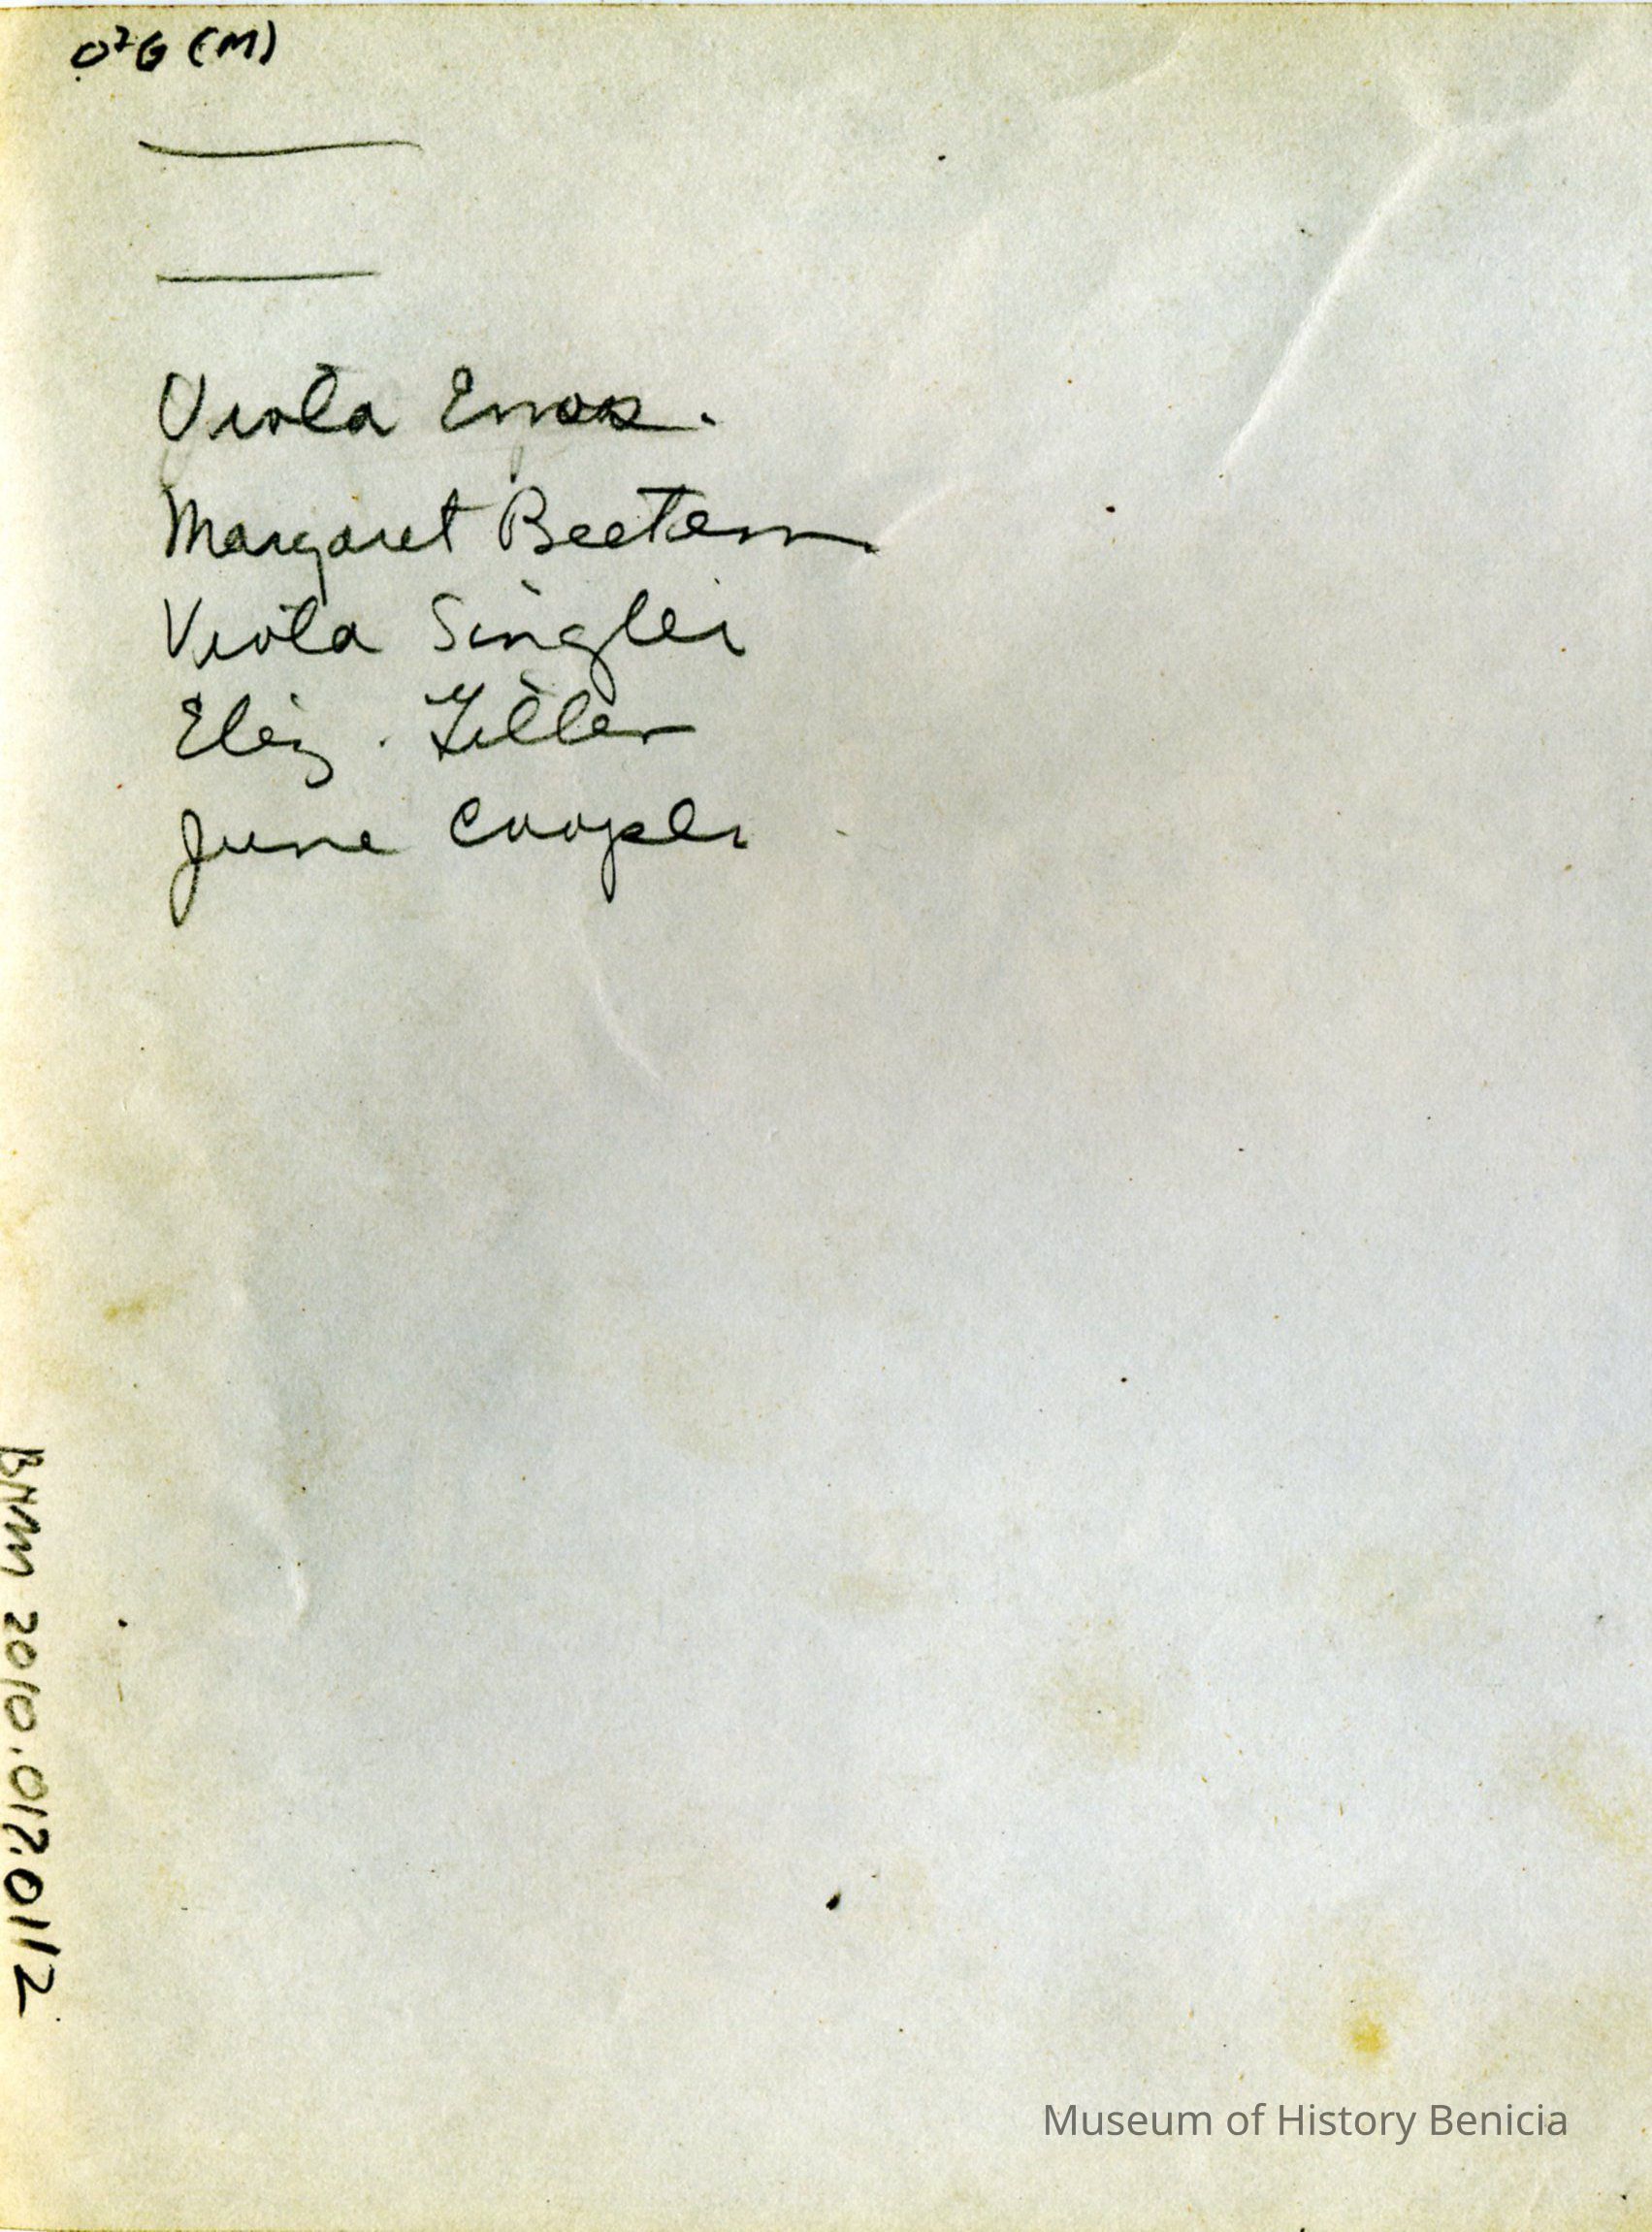 O²G (M)
Viola Enos.
Margaret Beetem
Viola Singler
Eliz. Ziller
June Cooper
BHM 2010.017.0112
Museum of History Benicia